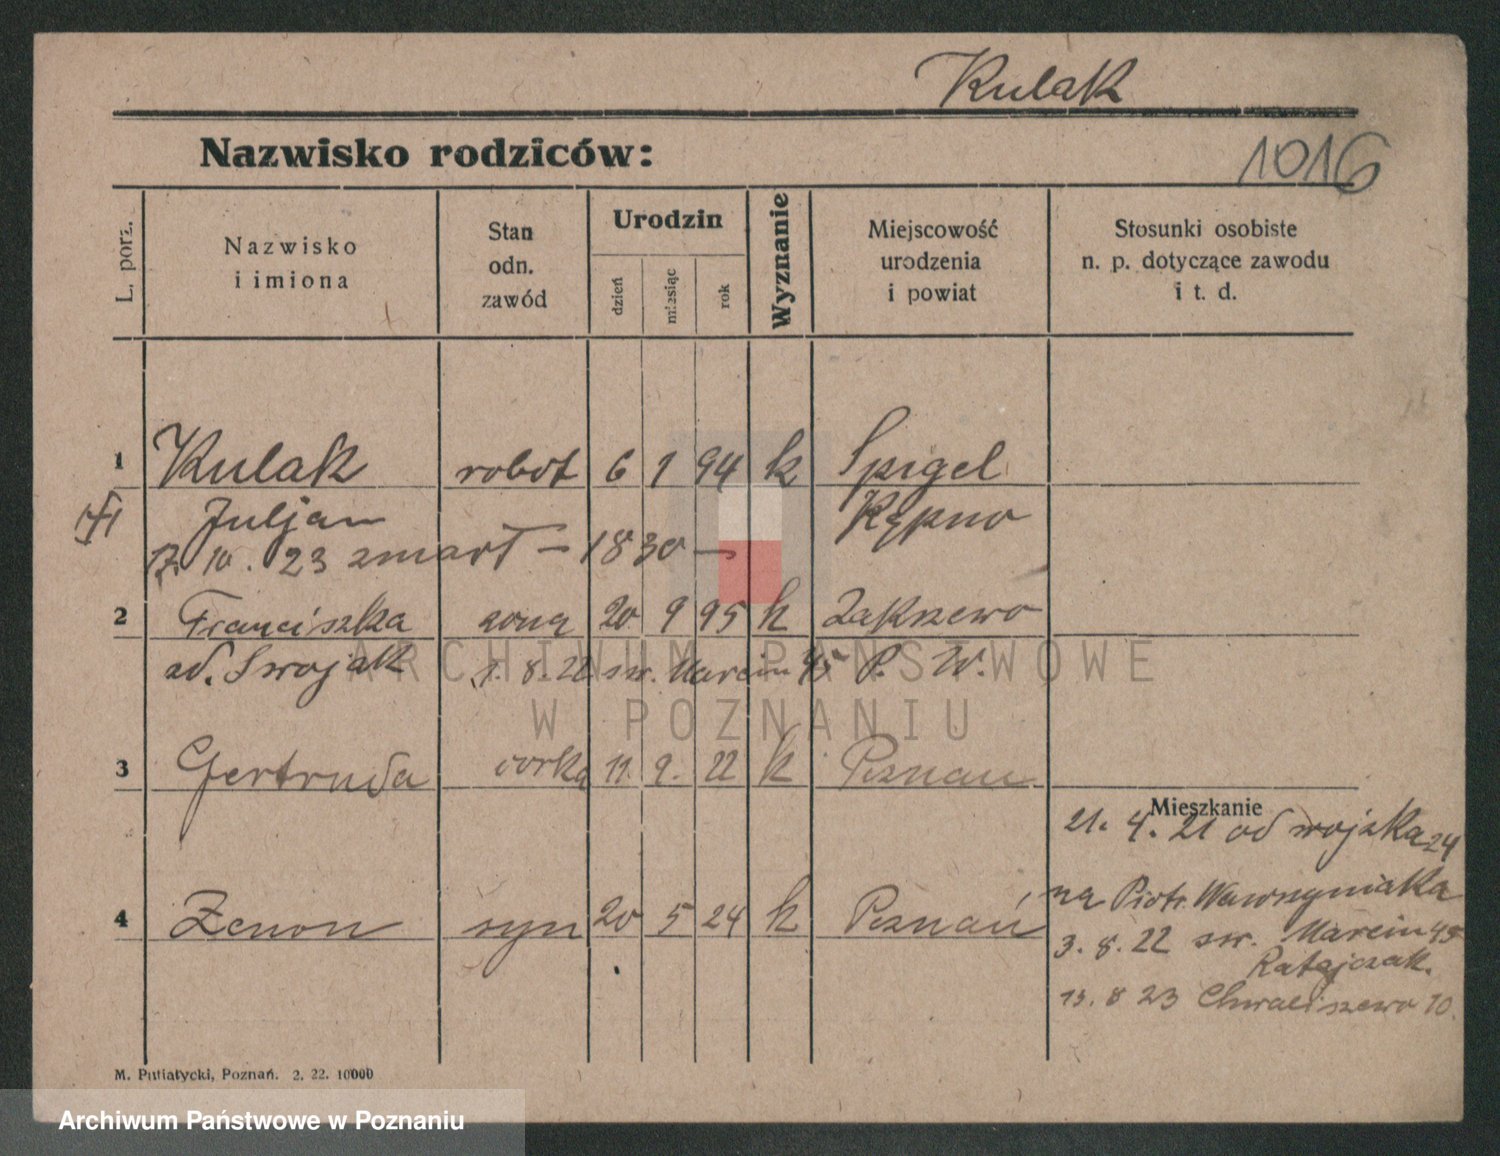 Kulak
Nazwisko rodziców:
1016
L. porz.
Nazwisko
i imiona
Stan
odn.
zawód
Urodzin
dzień
miesiąc
rok
Wyznanie
Miejscowość
urodzenia
i powiat
Stosunki osobiste
n. p. dotyczące zawodu
i t. d.
1 Kulak robot 6 1 94 k Spigel
Juljan Kępno
17. 10. 23 zmart – 1830 –
2 Franciszka żona 20 9 95 k Zakrzewo
od. Swojak 1. 8. 22 sw. Marcin 45 P. W.
3 Gertruda córka 11. 9. 22 k Poznań
Mieszkanie
21. 4. 21 od wojska 24
na Piotr. Wawrzyniaka
4 Zenon syn 20 5 24 k Poznań
3. 8. 22 sw. Marcin 45
Ratajczak.
15. 8 23 Chwaliszewo 70.
M. Putiatycki, Poznań. 2. 22. 10000
ARCHIWUM PAŃSTWOWE
W POZNANIU
Archiwum Państwowe w Poznaniu